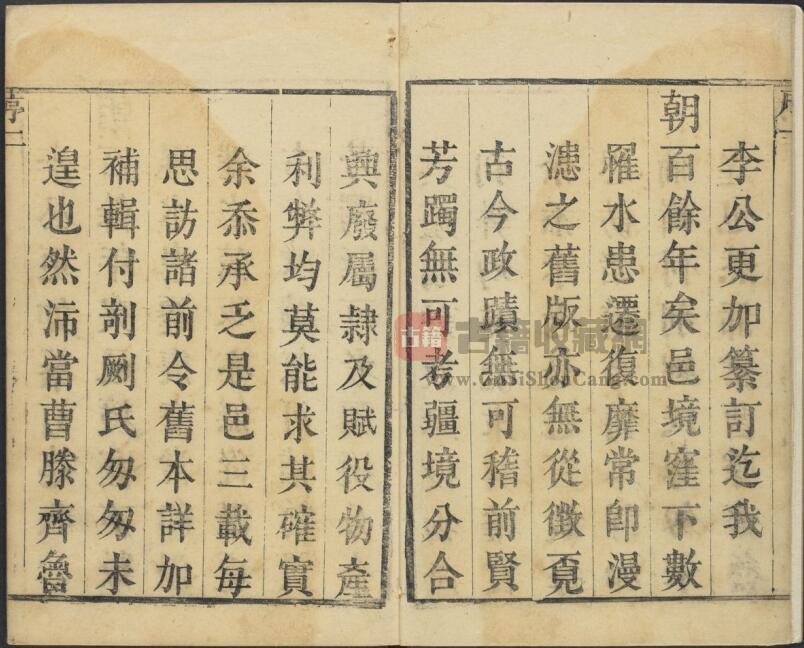 李公更加纂訂迄我
朝百餘年矣邑境窪下數
罹水患遷復靡常卽漫
漶之舊版亦無從徵覓
古今政蹟無可稽前賢
芳躅無可考疆境分合
興廢屬隸及賦役物產
利弊均莫能求其確實
余忝承乏是邑三載每
思訪諸前令舊本詳加
補輯付剞劂氏匆匆未
遑也然沛當曹滕齊魯
序一
序二
古籍
古籍收藏網
www.GuJiShouCang.com